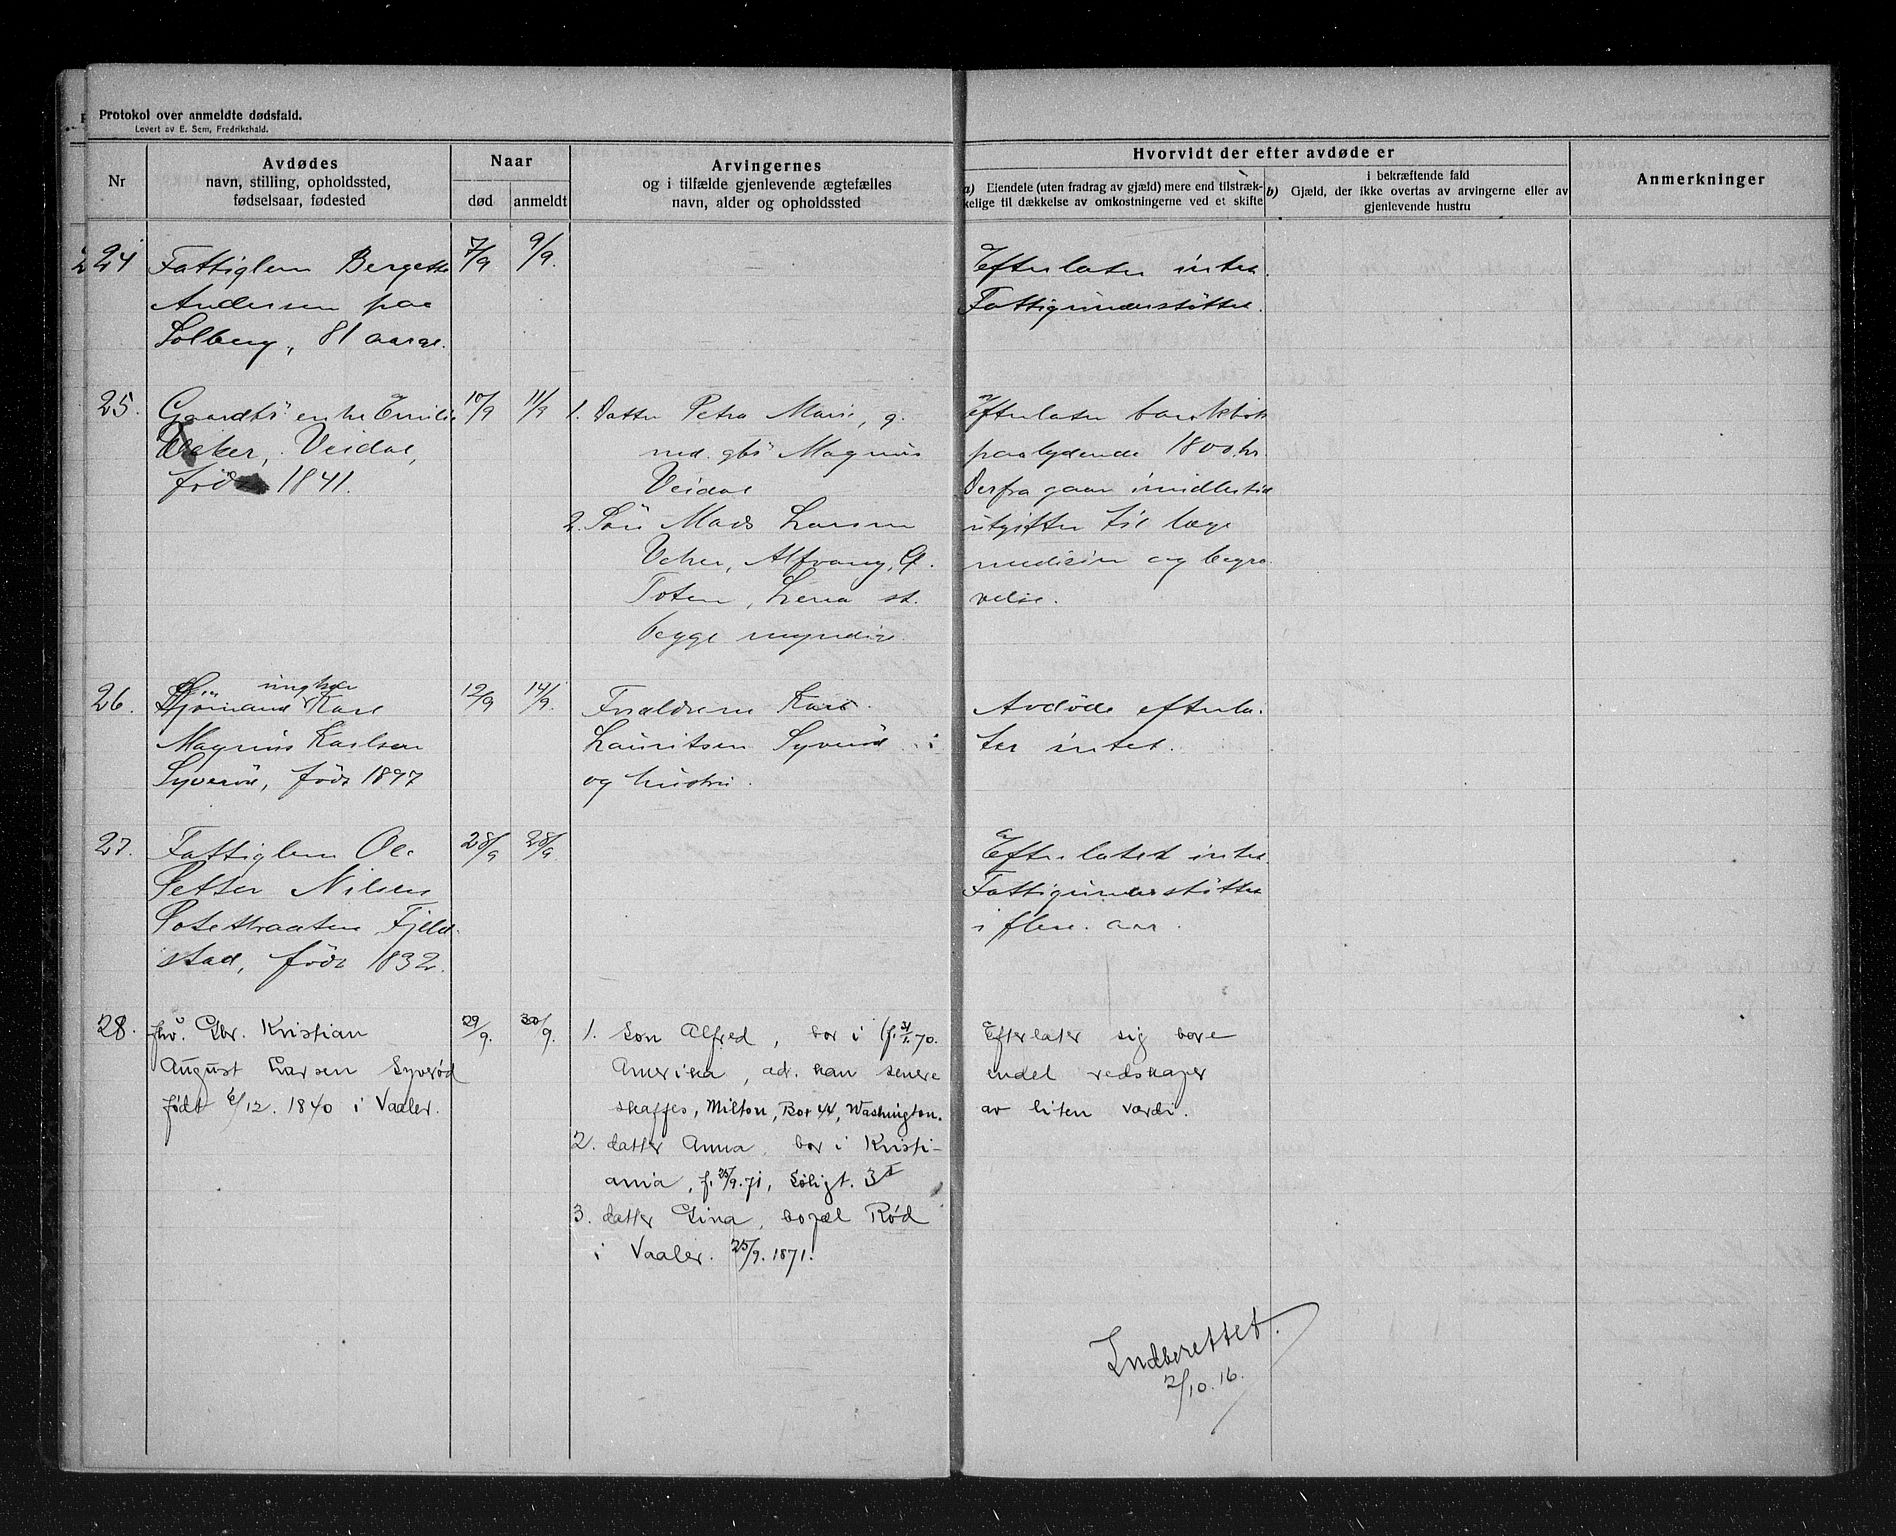 Protokol over anmeldte dødsfald.
Levert av E. Sem, Fredrikshald.
Nr
Avdødes
navn, stilling, opholdssted,
fødselsaar, fødested
Naar
død
anmeldt
Arvingernes
og i tilfælde gjenlevende ægtefælles
navn, alder og opholdssted
Hvorvidt der efter avdøde er
a) Eiendele (uten fradrag av gjæld) mere end tilstræk-
kelige til dækkelse av omkostningerne ved et skifte
i bekræftende fald
b) Gjæld, der ikke overtas av arvingerne eller av
gjenlevende hustru
Anmerkninger
24
Fattiglem Bergette
Andersen paa
Solberg, 81 aar
7/9
9/9.
Efterlater intet.
Fattigunderstøttet.
25.
Gaardbr enke Emilie
Veidal,
født 1841.
10/9
11/9
1. Datter Petra Marie, g.
med gbr Magnus
Veidal
2. Søn Mads Larsen
Alfvang, Ø.
Toten, Lena st.
begge myndige.
Efterlater bankbok
paalydende 1800 kr.
Derfra gaar imidlertid
utgifter til læge
medisin og begra-
velse.
26.
ungkar
Sjømand Karl
Magnus Karlsen
Syverød, født 1897
12/9
14/9.
Forældrene Karl
Lauritsen Syverød
og hustru.
Avdøde efterla-
ter intet.
27.
Fattiglem Ole
Petter Nilsen
Fjeld-
stad, født 1832.
28/9
28/9
Efterlater intet
Fattigunderstøttet
i flere aar.
28.
fhv. Gbr. Kristian
August Larsen Syverød
født 6/12. 1840 i Vaaler.
29/9.
30/9.
1. Søn Alfred, bor i (f. 21/1. 70.
Amerika, adr. kan senere
skaffes, Milton, Box 44, Washington.
2. datter Anna, bor i Kristi-
ania, f. 25/9. 71, Søligt. 3 I
3. datter Gina, bopæl Rød
i Vaaler. 25/9. 1871.
Efterlater sig bare
endel redskaper
av liten værdi.
Indberettet.
2/10. 16.